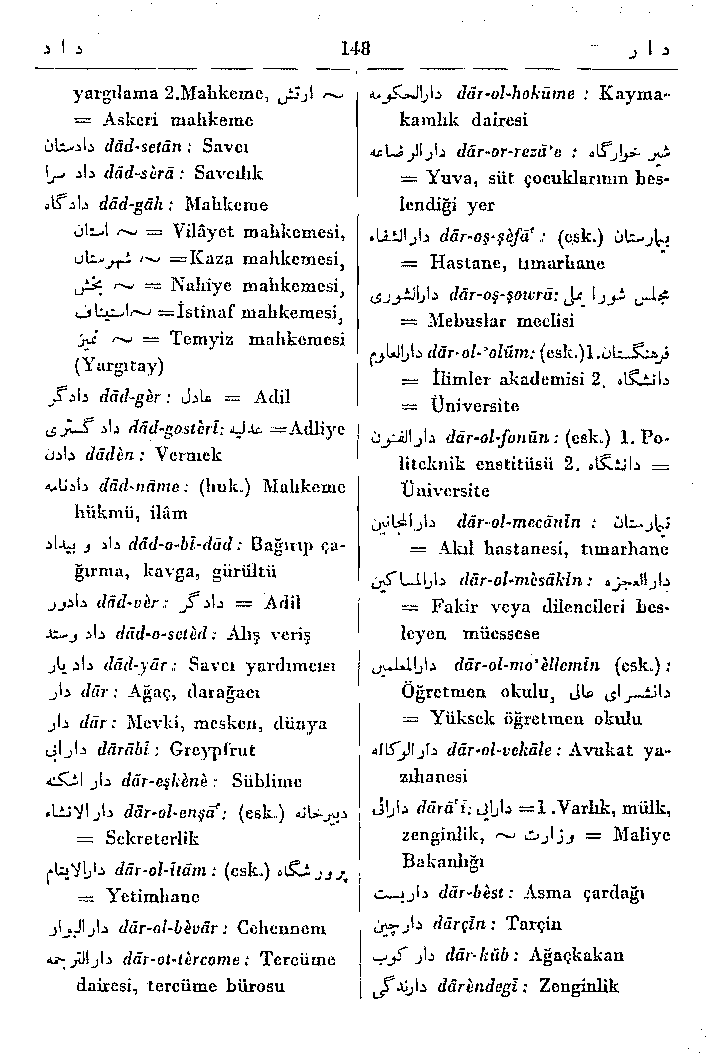 داد 148 دار
yargılama 2.Mahkeme, ارتش ~
= Askeri mahkeme
دادستان dād-setān : Savcı
داد سرا dād-sèrā : Savcılık
دادگاه dād-gāh : Mahkeme
استان ~ = Vilâyet mahkemesi,
شهرستان ~ =Kaza mahkemesi,
بخش ~ = Nahiye mahkemesi,
استیناف ~ =İstinaf mahkemesi,
تمیز ~ = Temyiz mahkemesi
(Yargıtay)
دادگر dād-gèr : عادل = Adil
داد گستری dād-gosterî: عدلیه =Adliye
دادن dādèn : Vermek
دادنامه dād-nāme : (huk.) Mahkeme
hükmü, ilâm
داد و بیداد dād-o-bî-dād : Bağırıp ça-
ğırma, kavga, gürültü
دادور dād-vèr : دادگر = Adil
داد و ستد dād-o-setèd : Alış veriş
داد یار dād-yār : Savcı yardımcısı
دار dār : Ağaç, darağacı
دار dār : Mevki, mesken, dünya
دارابی dārābî : Greypfrut
دار اشکنه dār-eşkènè : Süblime
دار الانشاء dār-ol-enşā' : (esk.) دبیرخانه
= Sekreterlik
دارالایتام dār-ol-îtām : (esk.) پرورشگاه
= Yetimhane
دارالبوار dār-ol-bèvār : Cehennem
دارالترجمه dār-ot-tèrcome : Tercüme
dairesi, tercüme bürosu
دارالحکومه dār-ol-hokūme : Kayma-
kamlık dairesi
دارالرضاعه dār-or-rezā'e : شیر خوارگاه
= Yuva, süt çocuklarının bes-
lendiği yer
دارالشفاء dār-oş-şèfā' : (esk.) بیمارستان
= Hastane, tımarhane
دارالشوری dār-oş-şowrā: مجلس شورا ملی
= Mebuslar meclisi
دارالعلوم dār-ol-'olūm: (esk.)1.فرهنگستان
= İlimler akademisi 2. دانشگاه
= Üniversite
دارالفنون dār-ol-fonūn : (esk.) 1. Po-
liteknik enstitüsü 2. دانشگاه =
Üniversite
دارالمجانین dār-ol-mecānîn : تیمارستان
= Akıl hastanesi, tımarhane
دارالمساکین dār-ol-mèsākîn : دارالعجزه
= Fakir veya dilencileri bes-
leyen müessese
دارالمعلمین dār-ol-mo'èllemîn (esk.) :
Öğretmen okulu, دانشسرای عالی
= Yüksek öğretmen okulu
دارالوکاله dār-ol-vekāle : Avukat ya-
zıhanesi
دارائی dārā'î : دارایی =1.Varlık, mülk,
zenginlik, ~ وزارت = Maliye
Bakanlığı
داربست dār-bèst : Asma çardağı
دارچین dārçîn : Tarçin
دار کوب dār-kūb : Ağaçkakan
دارندگی dārèndegî : Zenginlik